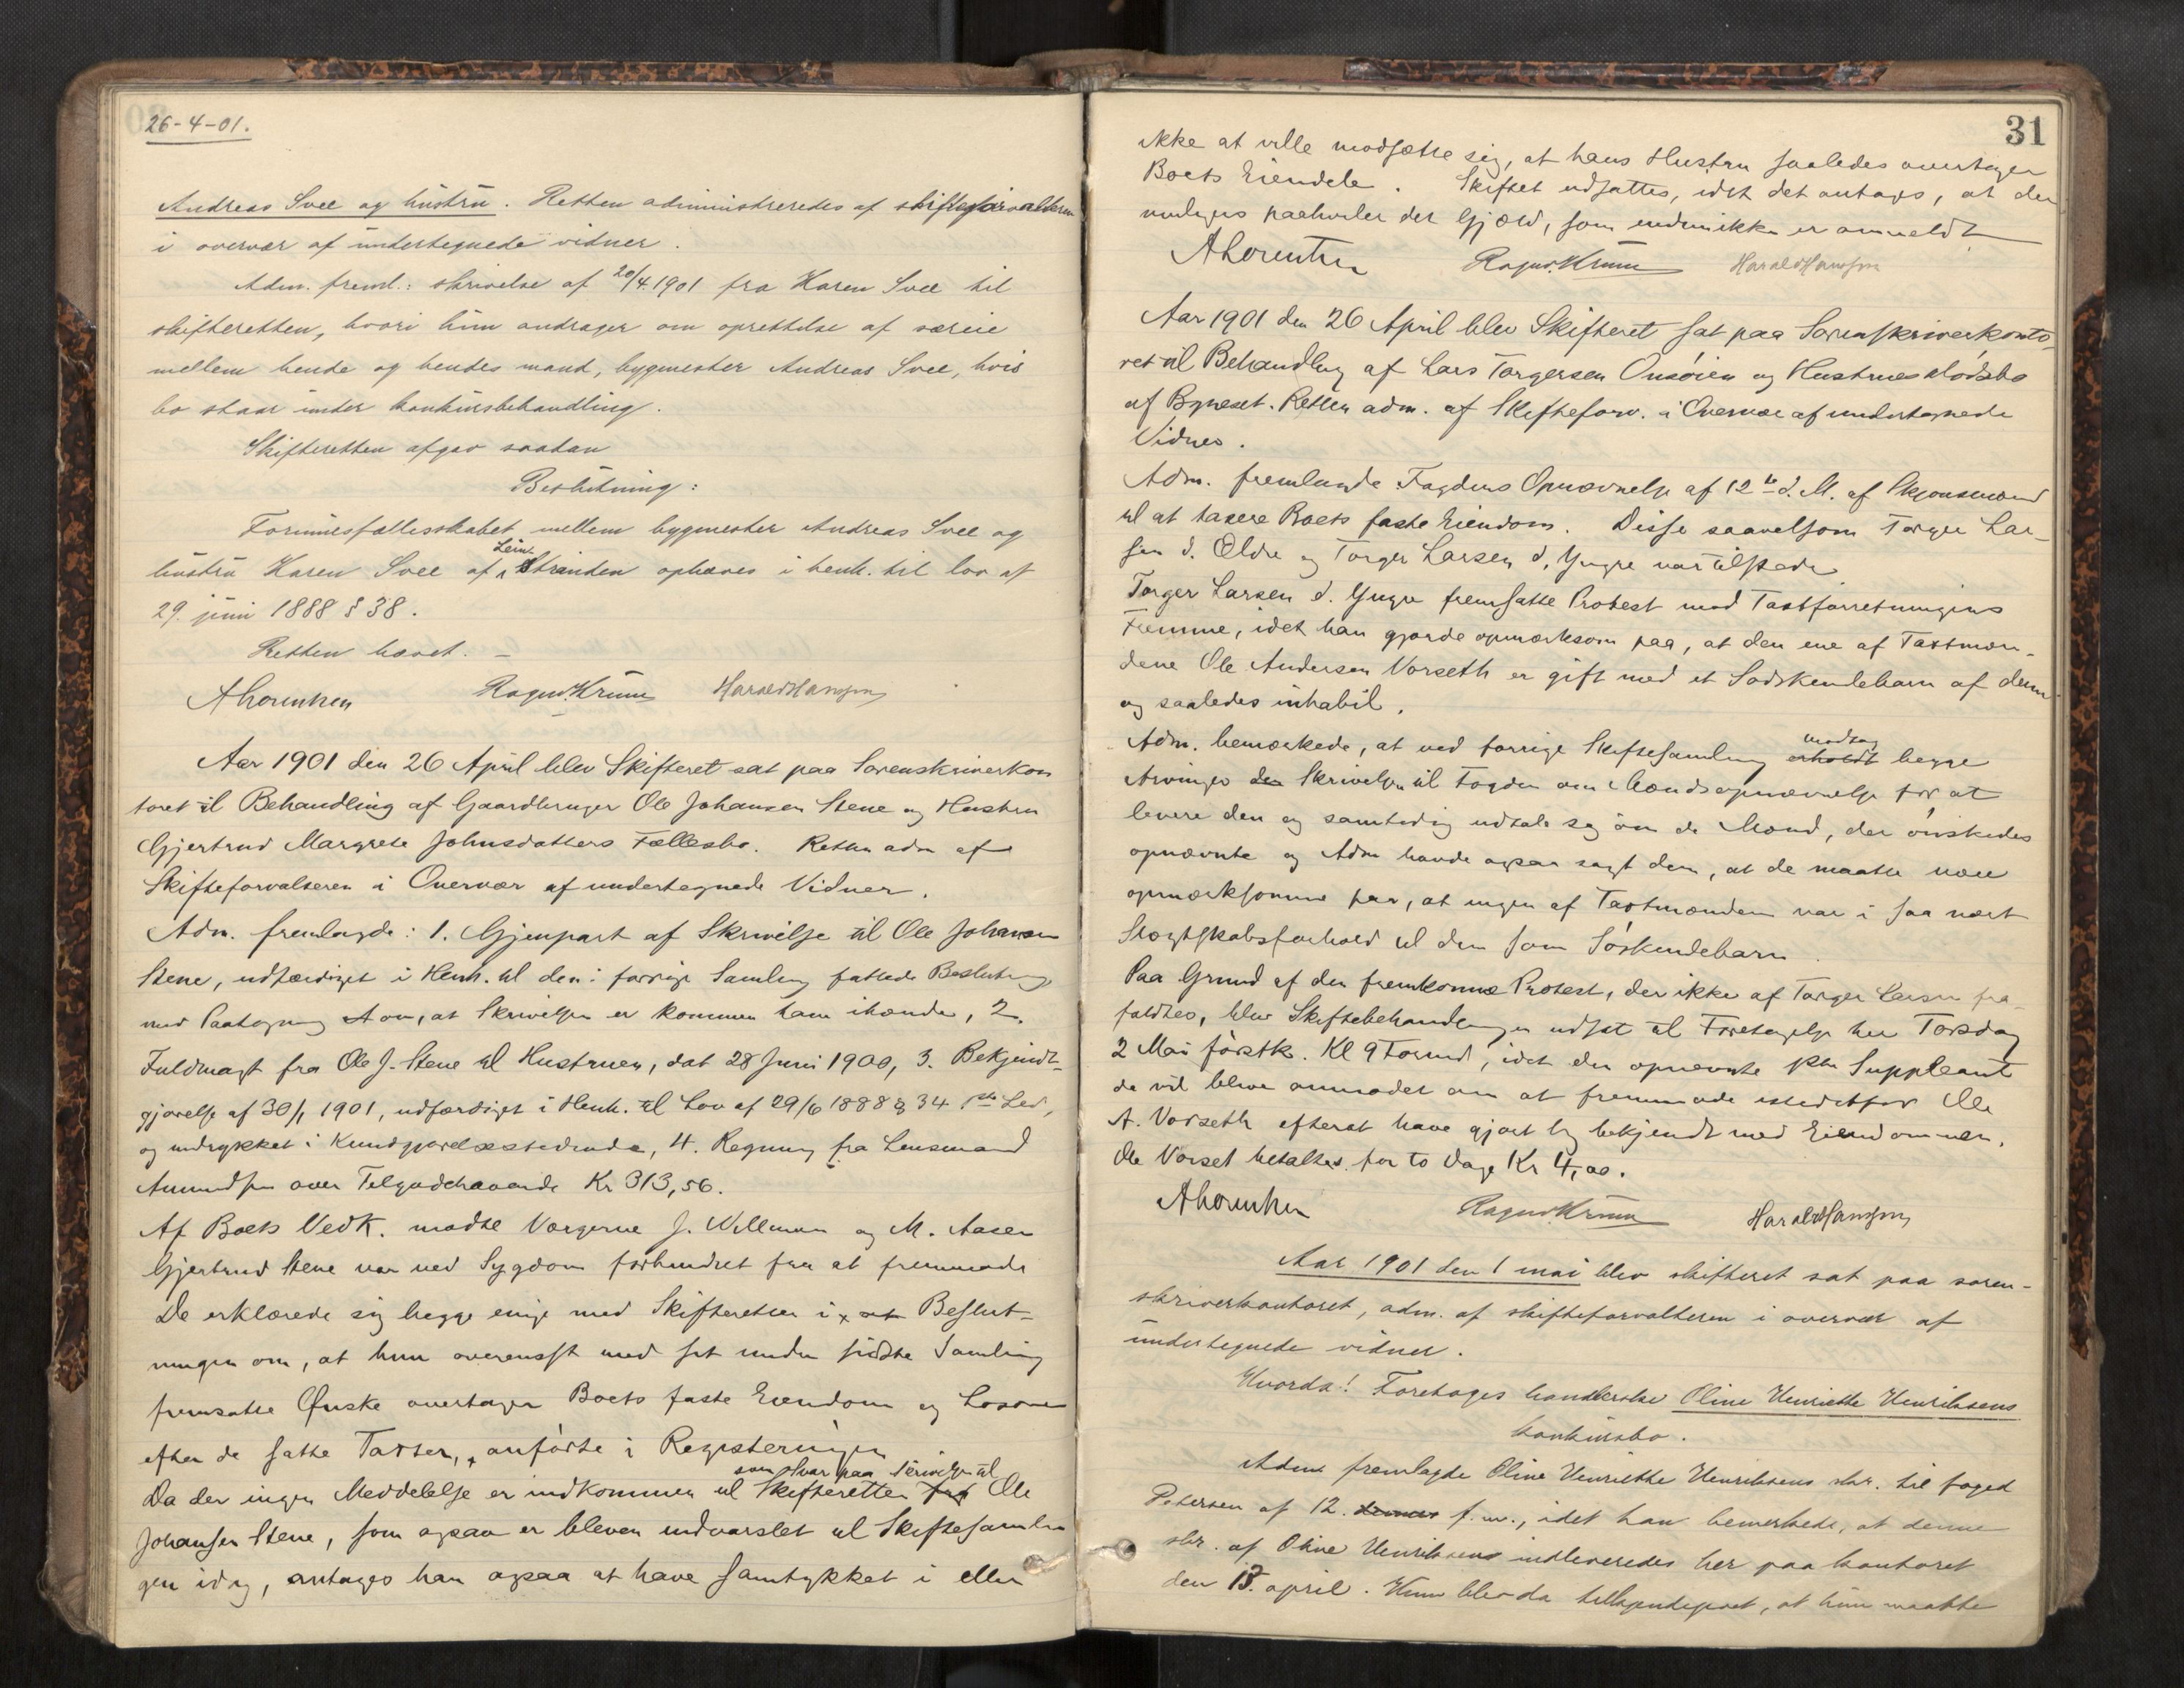 26-4-01.
Andreas Svee og hustru. Retten administreredes af skifteforvalteren
i overvær af undertegnede vidner.
Adm. freml.: skrivelse af 20/4 1901 fra Karen Svee til
skifteretten, hvori hun andrager om oprettelse af særeie
mellem hende og hendes mand, bygmester Andreas Svee, hvis
bo staar under konkursbehandling.
Skifteretten afgav saadan
Beslutning:
Formuesfællesskabet mellem bygmester Andreas Svee og
hustru Karen Svee af Leinstranden ophæves i henh. til lov af
29. juni 1888 § 38.
Retten hævet. –
A Lorentzen Ragnv. Krüm Harald Hansen
Aar 1901 den 26 April blev Skifteret sat paa Sorenskriverkon
toret til Behandling af Gaardbruger Ole Johansen Stene og Hustru
Gjertrud Margrete Johnsdatters Fællesbo. Retten adm af
Skifteforvalteren i Overvær af undertegnede Vidner.
Adm. fremlagde: 1. Gjenpart af Skrivelse til Ole Johansen
Stene, udfærdiget i Henh. til den i forrige Samling fattede Beslutning
med Paategning om, at Skrivelsen er kommen ham ihænde, 2.
Fuldmagt fra Ole J. Stene til Hustruen, dat 28 Juni 1900, 3. Bekjendt-
gjørelse af 30/1 1901, udfærdiget i Henh. til Lov af 29/6 1888 § 34 1ste Led,
og indrykket i Kundgjørelsestidende, 4. Regning fra Lensmand
Amundsen over Tilgodehavende Kr 313,56.
Af Boets Vedk. mødte Værgerne J. Willman og M. Aasen
Gjertrud Stene var ved Sygdom forhindret fra at fremmøde
De erklærede sig begge enige med Skifteretten i Beslut-
ningen om, at hun overensst med sit under sidste Samling
fremsatte Ønske overtager Boets faste Eiendom og Løsøre
efter de satte Taxter, anførte i Registeringen
Da der ingen Meddelelse er indkommen til Skifteretten som Svar paa Skrivelsen til Ole
Johansen Stene, som ogsaa er bleven indvarslet til Skiftesamlin
gen idag, antages han ogsaa at have samtykket i eller
31
ikke at ville modsætte sig, at hans Hustru saaledes overtager
Boets Eiendele. Skiftet udsattes, idet det antages, at der
muligens paahviler det Gjæld, som endnu ikke er anmeldt
A Lorentzen Ragnv. Krüm Harald Hansen
Aar 1901 den 26 April blev Skifteret sat paa Sorenskriverkonto-
ret til Behandling af Lars Torgersen Onsøien og Hustrues dødsbo
af Bynesset. Retten adm. af Skifteforv. i Overvær af undertegnede
Vidner.
Adm. fremlagde Fogdens Opnævnelse af 12te d. M. af Skjønsmænd
til at taxere Boets faste Eiendom. Disse saavelsom Torger Lar-
sen d. Ældre og Torger Larsen d. Yngre var tilstede
Torger Larsen d. Yngre fremsatte Protest mod Taxtforretningens
Fremme, idet han gjorde opmærksom paa, at den ene af Taxtmæn-
dene Ole Andersen Vorseth er gift med et Sødskendebarn af dem
og saaledes inhabil.
Adm. bemærkede, at ved forrige Skiftesamling erholdt modtog begge
Arvinger den Skrivelsen til Fogden om Mændsopnævnelse for at
levere den og samtidig udtale sig om de Mænd, der ønskedes
opnævnte og Adm havde ogsaa sagt dem, at de maatte være
opmærksomme paa, at ingen af Taxtmændene var i saa nært
Slægtskabsforhold til dem som Søskendebarn.
Paa Grund af den fremkomne Protest, der ikke af Torger Larsen fra-
faldtes, blev Skiftebehandlingen udsat til Foretagelse her Torsdag
2 Mai førstk. Kl 9 Formd, idet den opnævnte 1ste Suppleant
da vil blive anmodet om at fremmøde istedetfor Ole
A. Vorseth efterat have gjort sig bekjendt med Eiendommen.
Ole Vorset betaltes for to Dage Kr 4,00.
A Lorentzen Ragnv. Krüm Harald Hansen
Aar 1901 den 1 mai blev skifteret sat paa soren-
skriverkontoret, adm. af skifteforvalteren i overvær af
undertegnede vidner.
Hvorda! Foretoges handlerske Oline Henriette Henriksens
konkursbo.
Adm. fremlagde Oline Henriette Henriksens skr. til foged
Petersen af 12. denne f. m., idet han bemerkede, at denne
skr. af Oline Henriksens indleveredes her paa kontoret
den 13. april. Hun blev da tilkjendegivet, at hun maatte